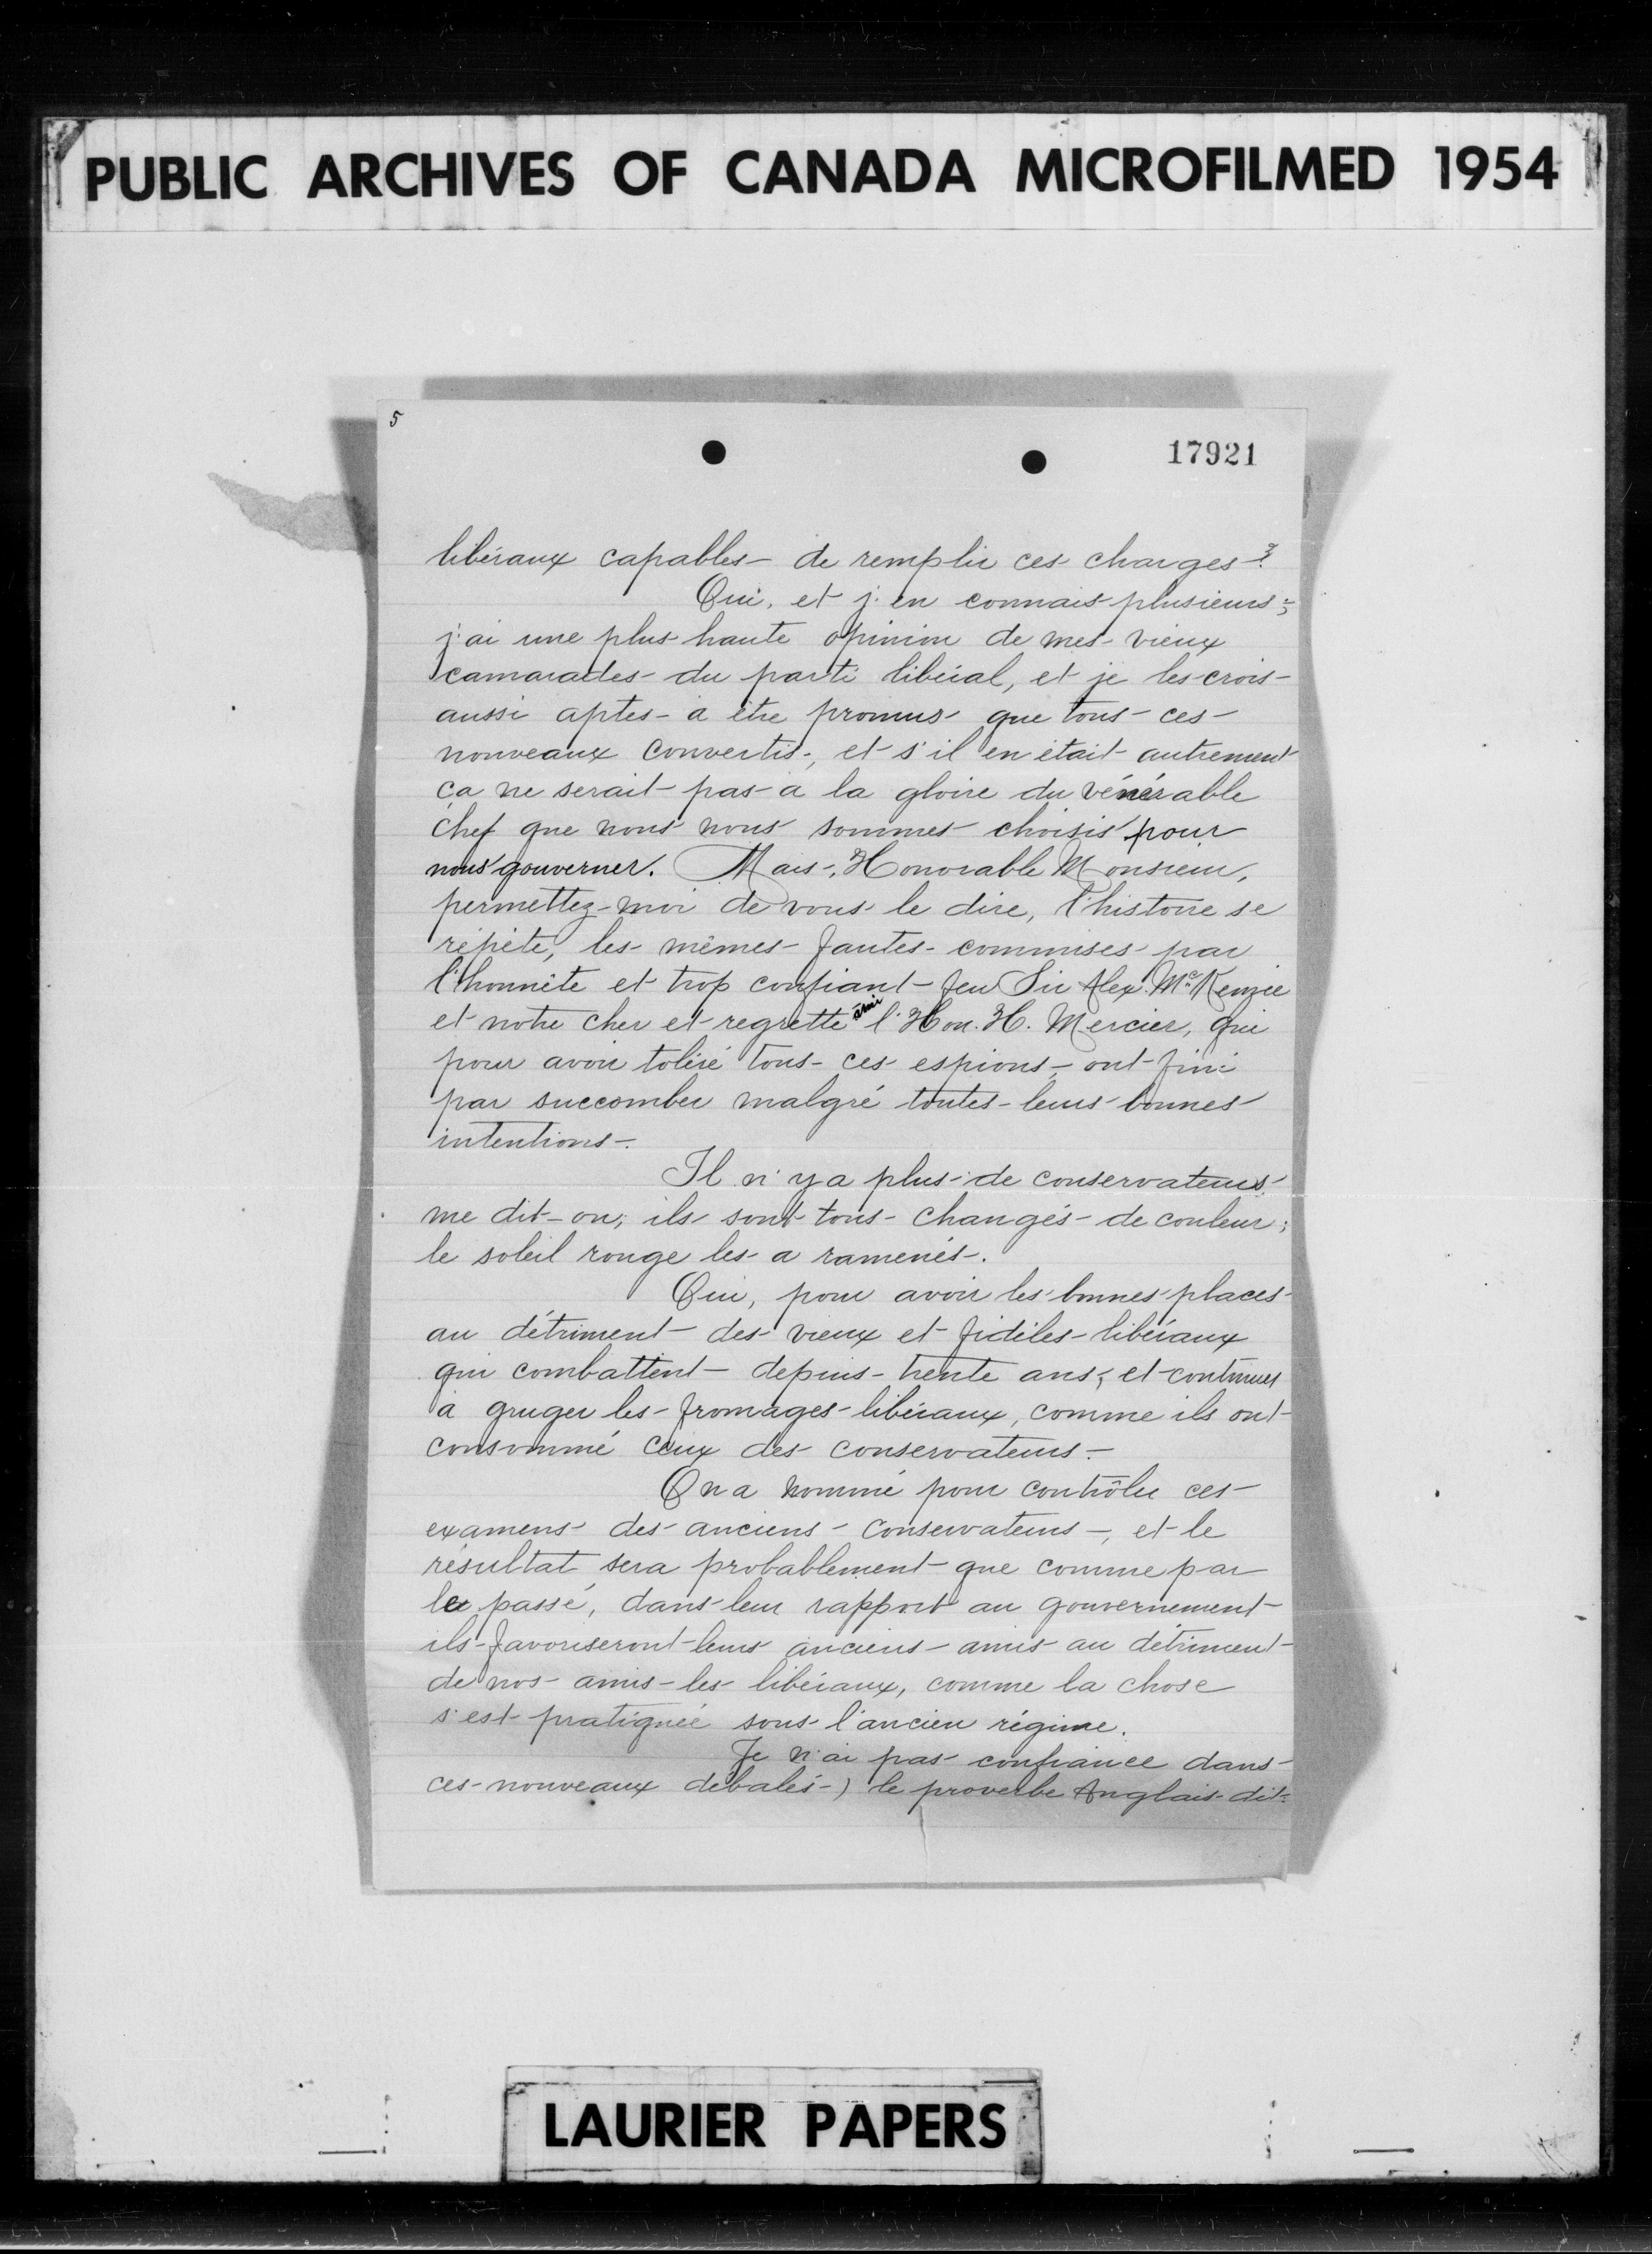 PUBLIC ARCHIVES OF CANADA MICROFILMED 1954
5
17921
libéraux capables de remplir ces charges?
Oui, et j'en connais plusieurs;
j'ai une plus haute opinion de mes vieux
camarades du parti libéral, et je les crois
aussi aptes à être promus que tous ces
nouveaux convertis, et s'il en était autrement
ça ne serait pas à la gloire du vénérable
chef que nous nous sommes choisis pour
nous gouverner. Mais, Honorable Monsieur,
permettez-moi de vous le dire, l'histoire se
répète, les mêmes fautes commises par
l'honnête et trop confiant feu Sir Alex. McKenzie
et notre cher et regretté ami l'Hon. H. Mercier, qui
pour avoir toléré tous ces espions, ont fini
par succomber malgré toutes leurs bonnes
intentions.
Il n'y a plus de conservateurs
me dit-on; ils sont tous changés de couleur;
le soleil rouge les a ramenés.
Oui, pour avoir les bonnes places
au détriment des vieux et fidèles libéraux
qui combattent depuis trente ans, et continuer
à gruger les fromages libéraux, comme ils ont
consommé ceux des conservateurs.
On a nommé pour contrôler ces
examens des anciens conservateurs, et le
résultat sera probablement que comme par
le passé, dans leur rapport au gouvernement
ils favoriseront leurs anciens amis au détriment
de nos amis les libéraux, comme la chose
s'est pratiquée sous l'ancien régime.
Je n'ai pas confiance dans
ces nouveaux débalés) le proverbe Anglais dit:
LAURIER PAPERS